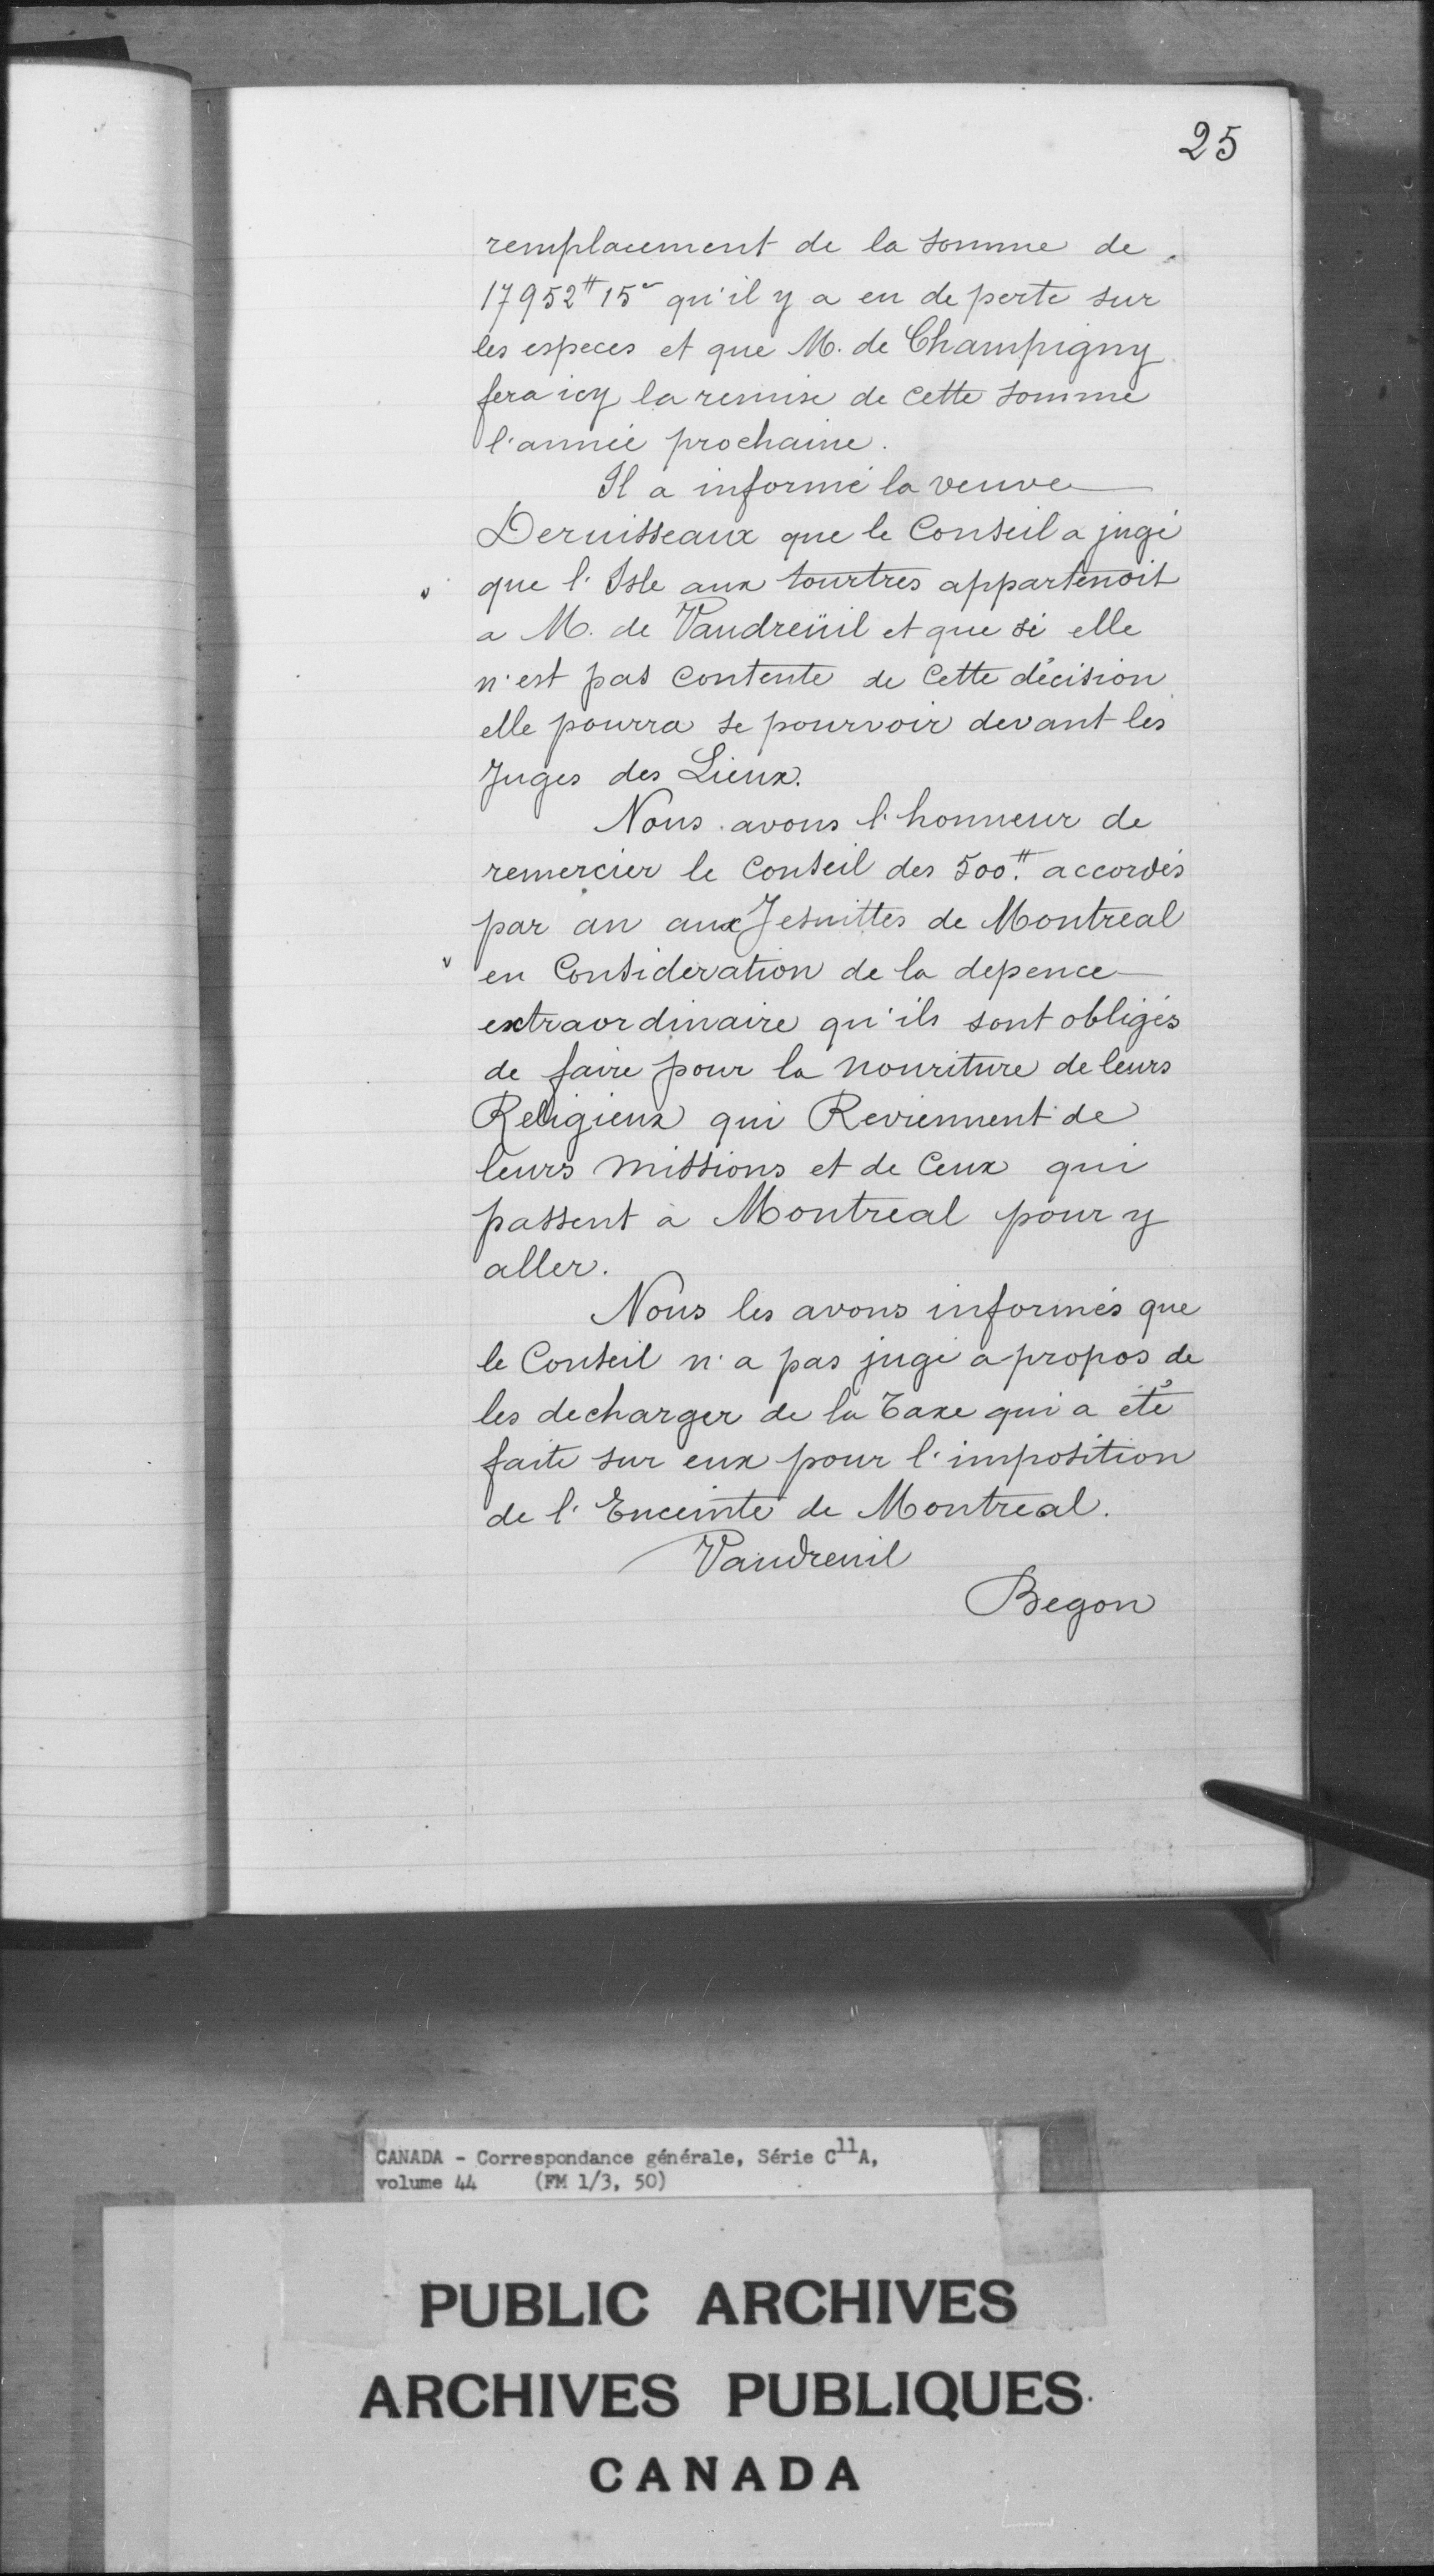 25
remplacement de la somme de
17952# 15s qu'il y a eu de perte sur
les especes et que M. de Champigny
fera icy la remise de cette somme
l'année prochaine.
Il a informé la veuve
Deruisseaux que le Conseil a jugé
que l'Isle aux tourtres appartenoit
a M. de Vaudreüil et que si elle
n'est pas contente de cette décision
elle pourra se pourvoir devant les
Juges des Lieux.
Nous avons l'honneur de
remercier le Conseil des 500.# accordés
par an aux Jesuittes de Montreal
en Consideration de la depence
extraordinaire qu'ils sont obligés
de faire pour la nouriture de leurs
Religieux qui Reviennent de
leurs missions et de Ceux qui
passent à Montreal pour y
aller.
Nous les avons informés que
le Conseil n'a pas jugé apropos de
les decharger de la Taxe qui a été
faite sur eux pour l'imposition
de l'Enceinte de Montreal.
Vaudreuil
Begon
CANADA - Correspondance générale, Série C11A,
volume 44 (FM 1/3, 50)
PUBLIC ARCHIVES
ARCHIVES PUBLIQUES
CANADA